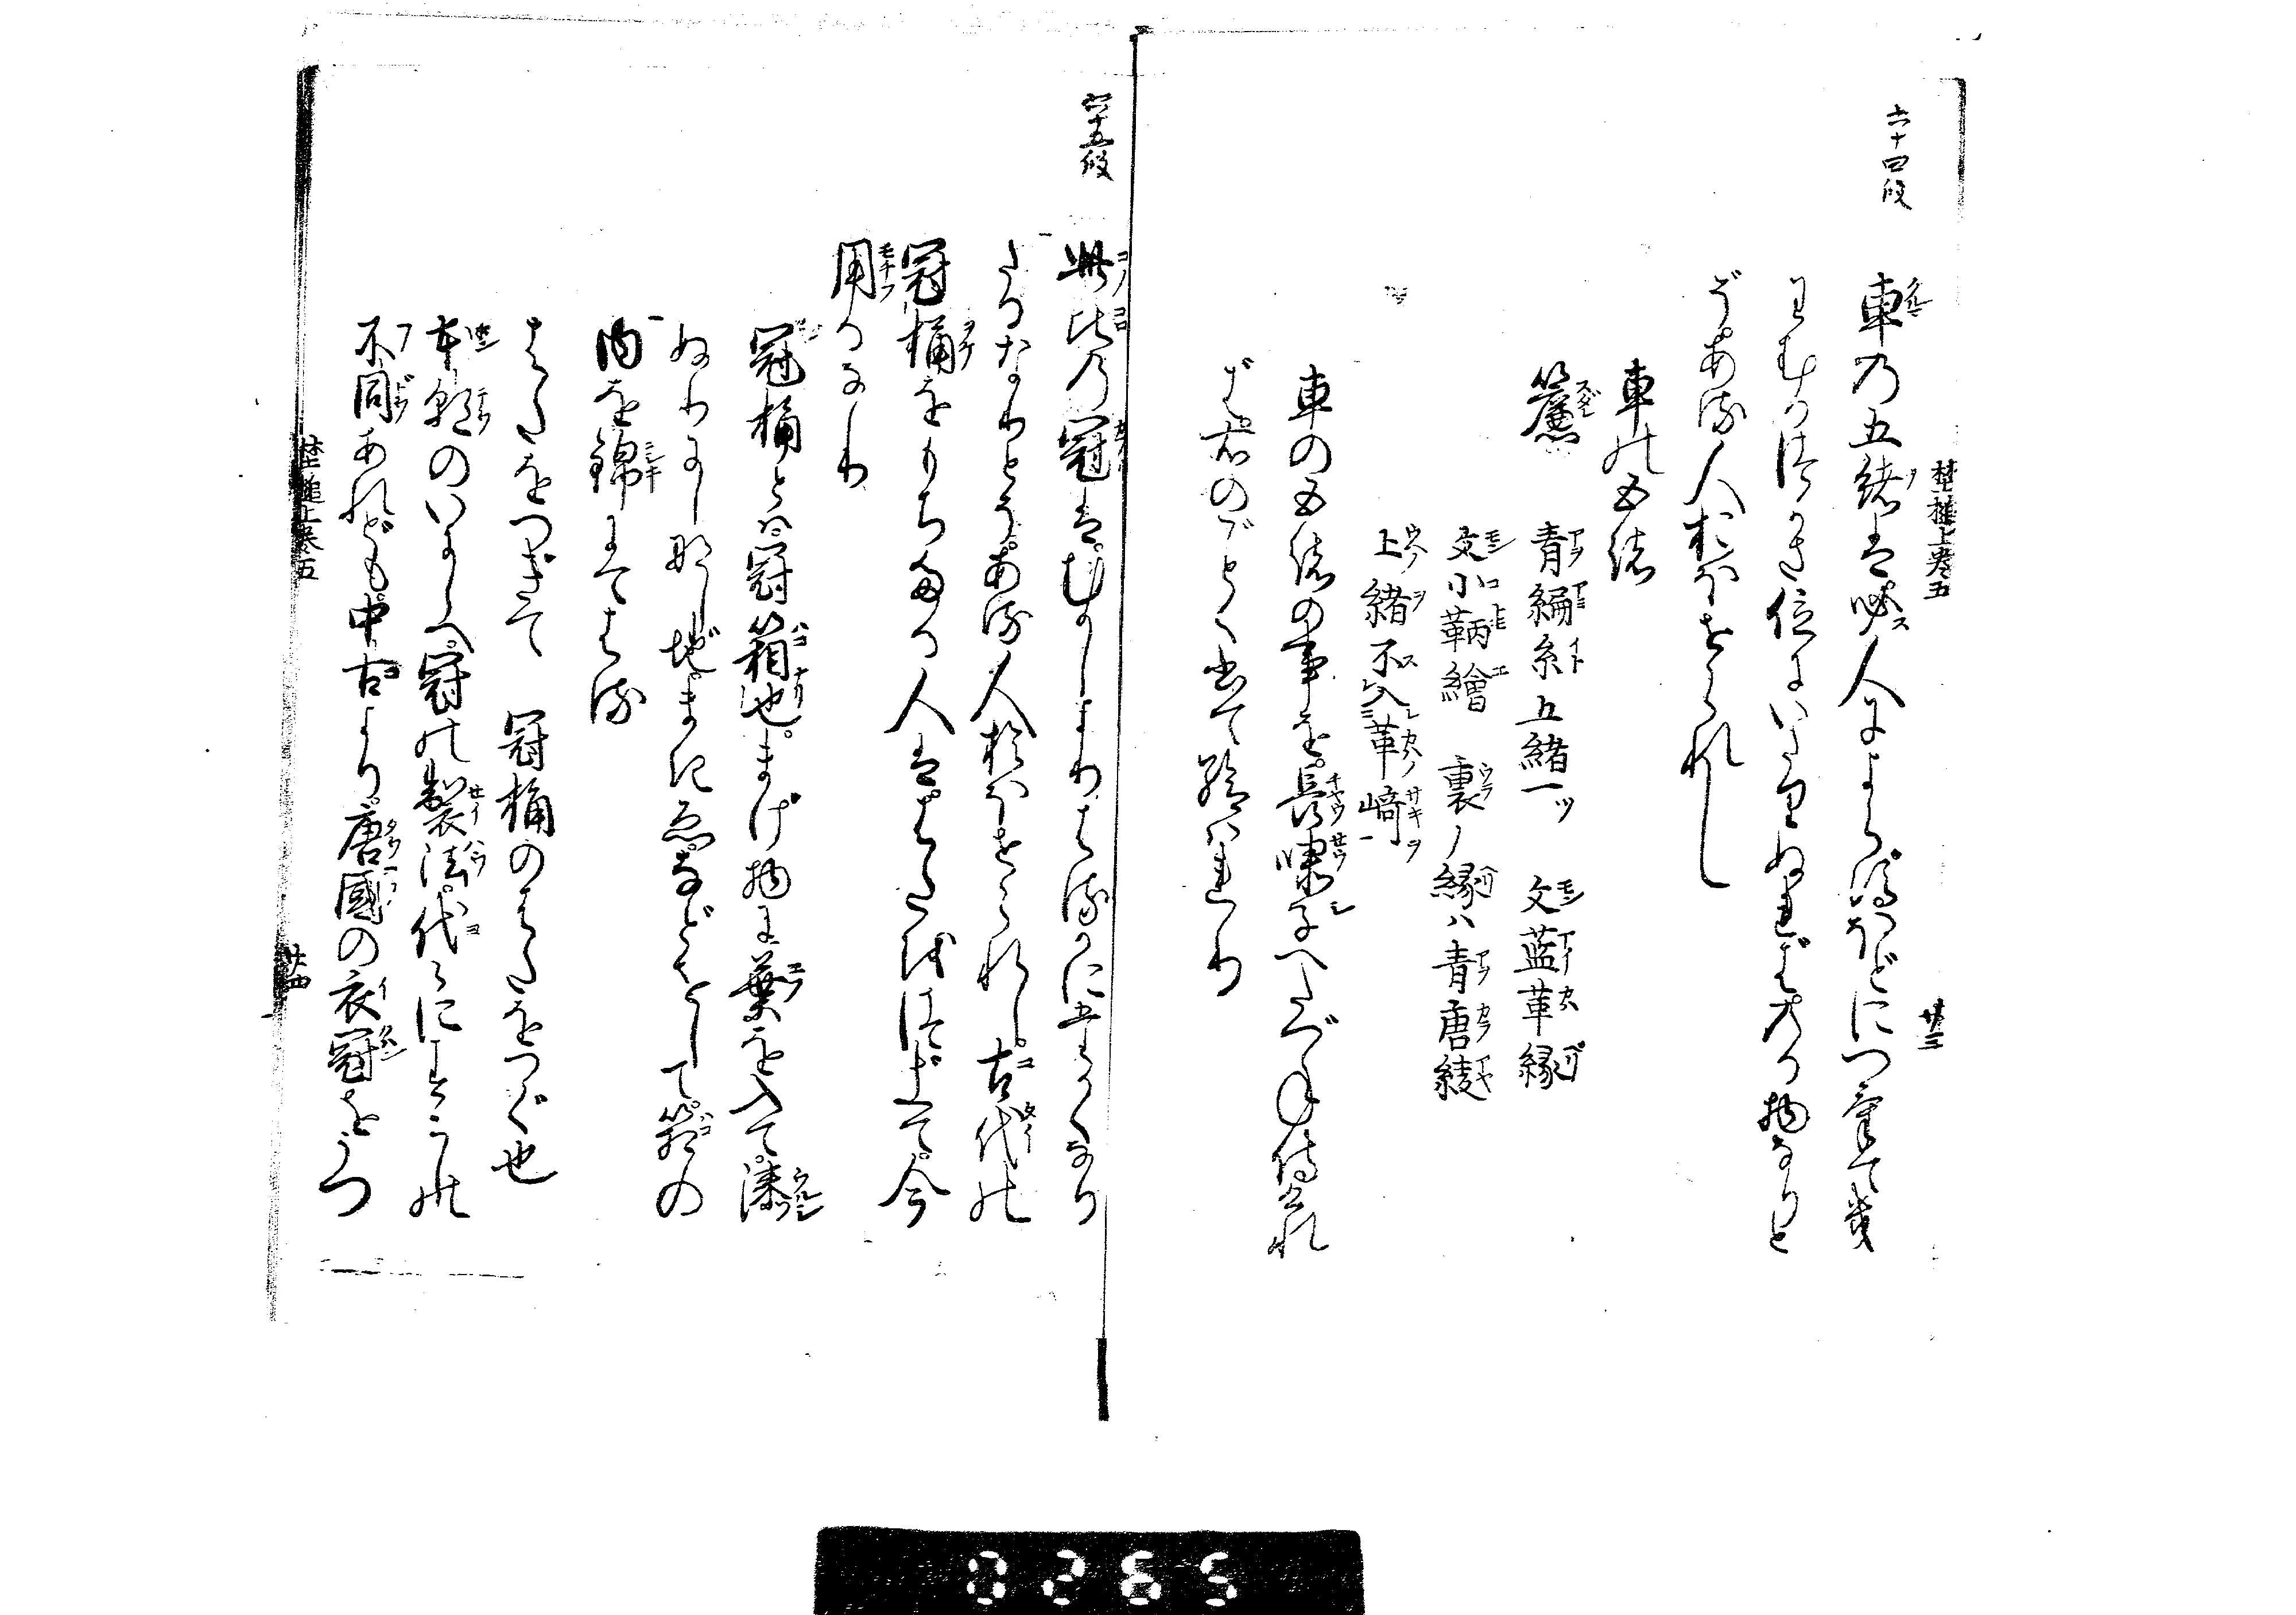 埜槌上巻五
廿三
六十四段
車乃五緒は必人によらずほどにつけて極
きはむるつかさ位にいたりぬればのる物なりと
ぞある人おほせられし
車の五緒
簾 青編糸五緒一ッ 文藍革縁
文小鞆繪 裏ノ縁ハ青唐綾
上緒不入革﨑
車の五緒の事を長嘯子へたづね侍れ
ば右のごとく書て給はれり
六十五段
此比乃冠はむかしよりははるかに高くなり
たるなりとぞある人おほせられし古代の
冠桶をもちたる人ははたをつぎて今
用るなり
冠桶とは冠箱也まげ物に葉を入て漆
ぬりにし梨地まきゑなどをして箱の
内を錦にてはる
はたをつぎて 冠桶のはたをつぐ也
本朝のいにしへ冠の製法代々にしてこれ
不同あれども中古より唐國の衣冠をうつ
埜槌上巻五
廿四
0265